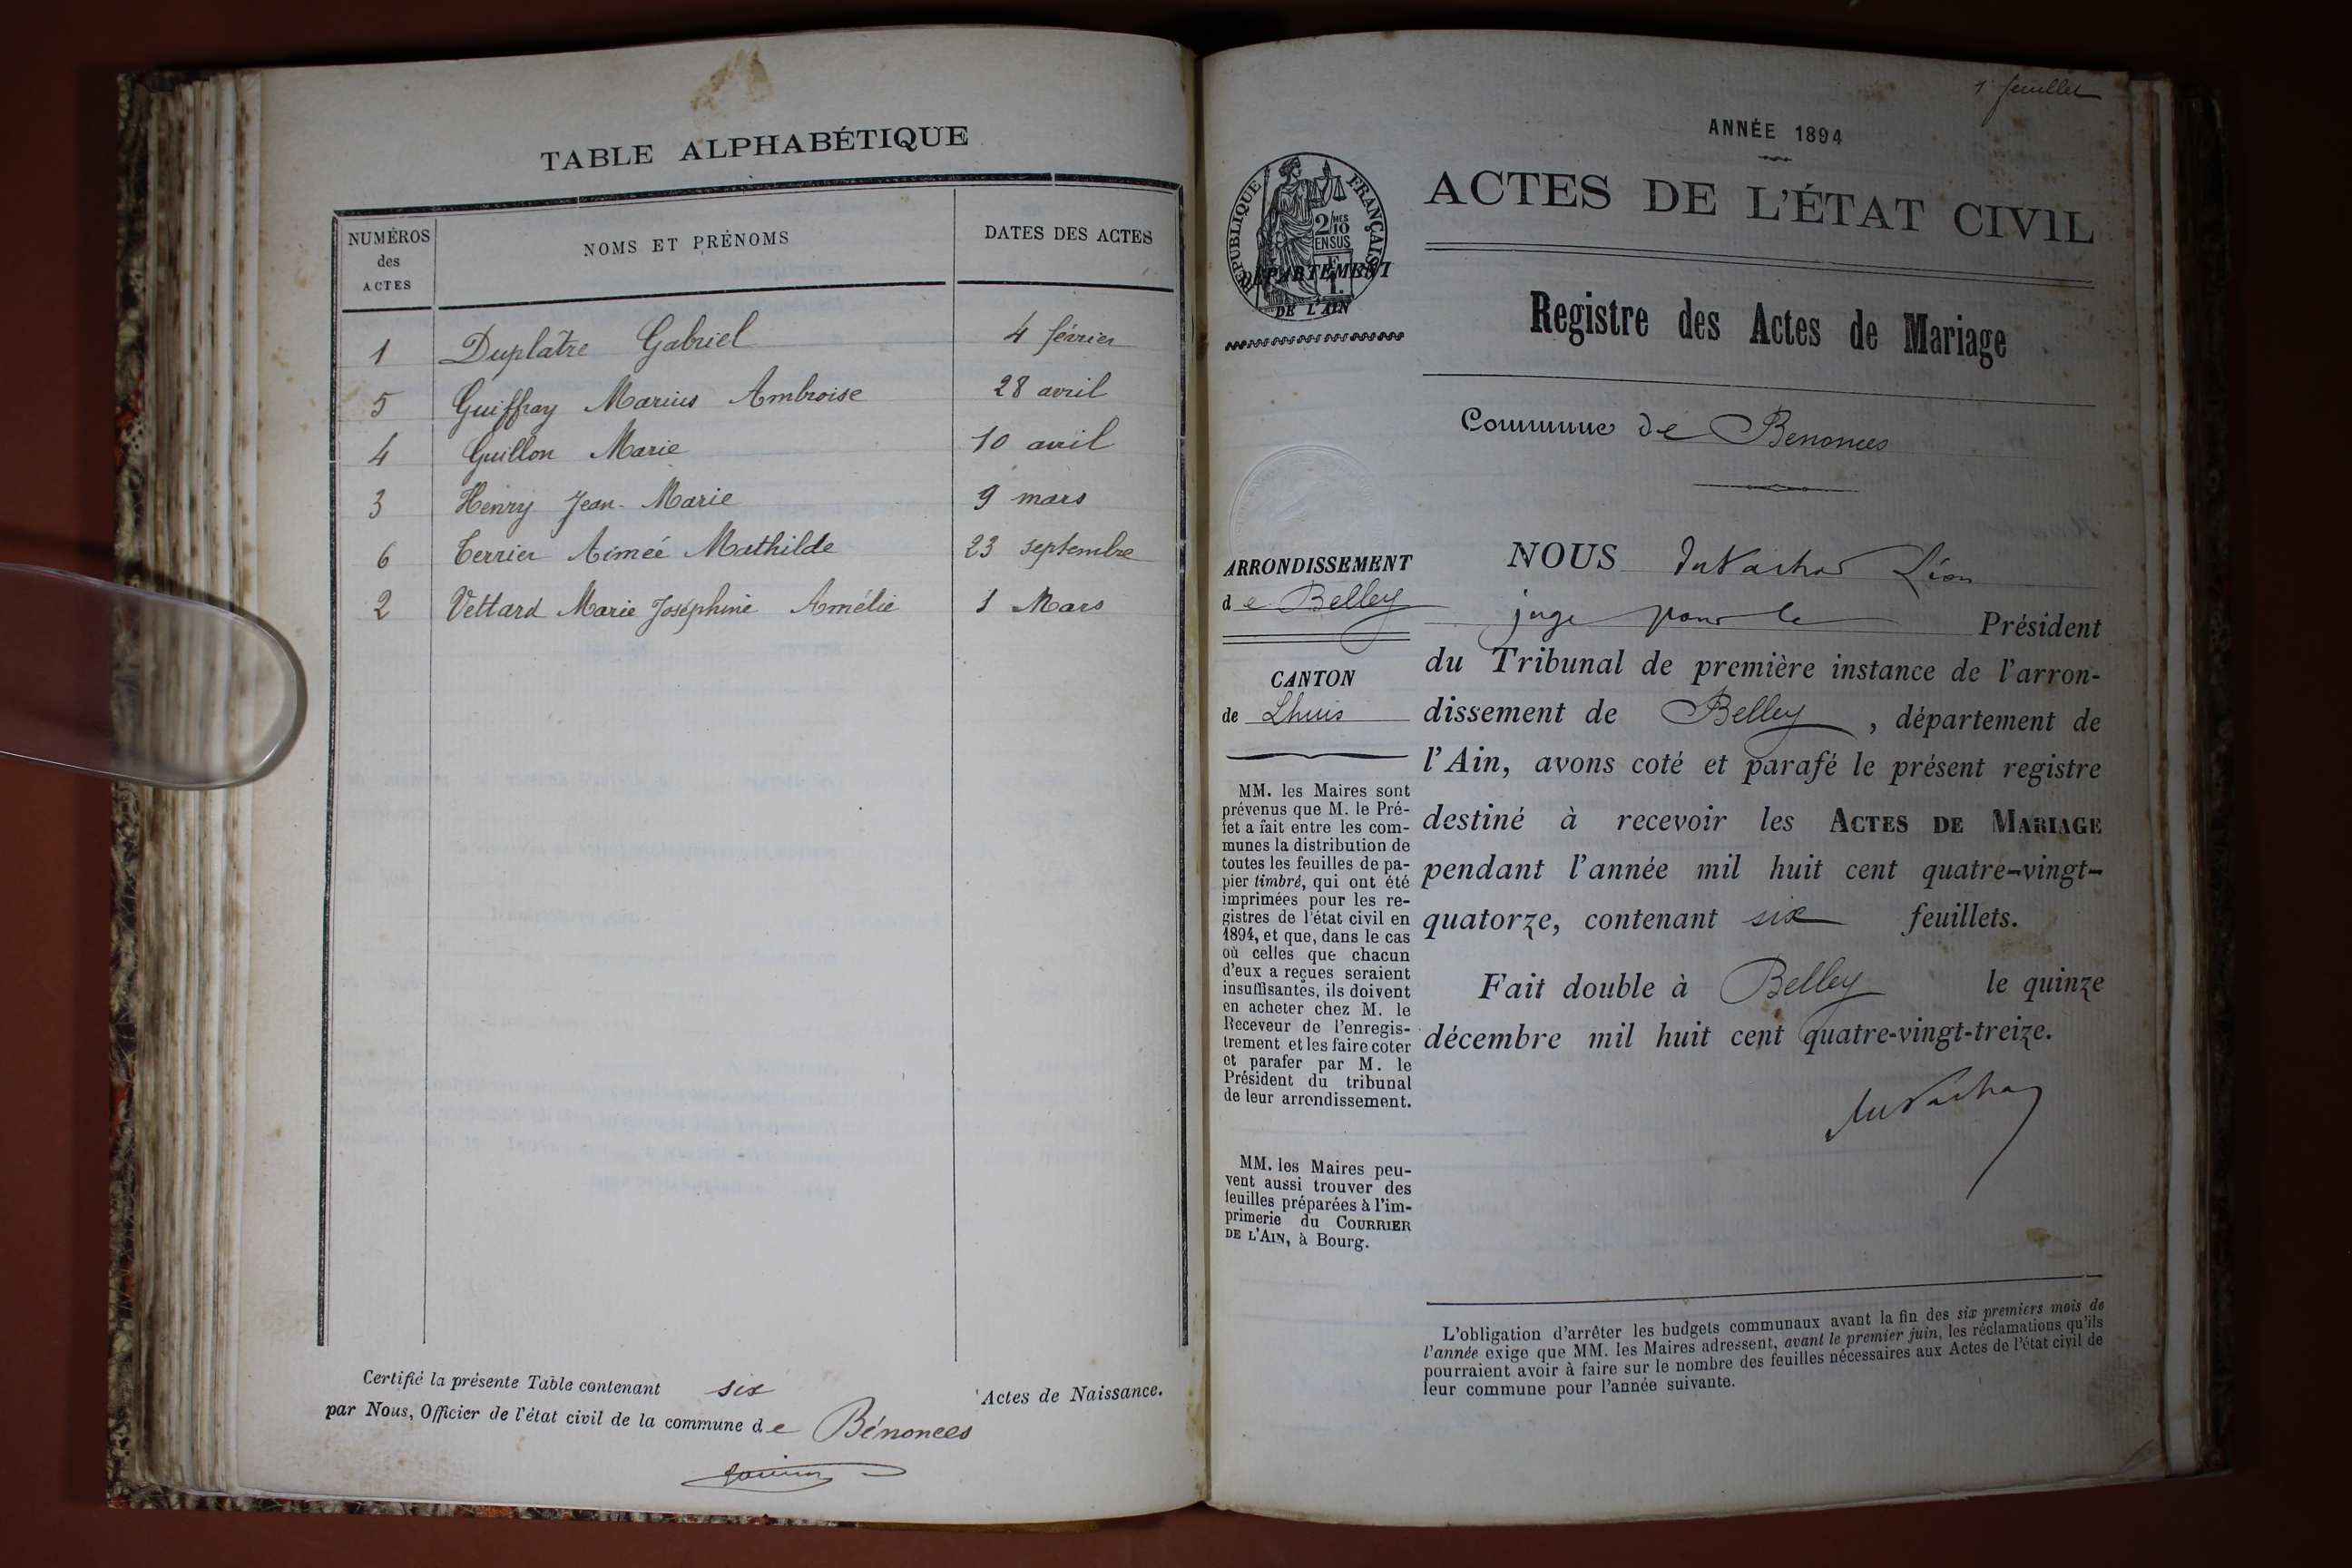 TABLE ALPHABÉTIQUE
NUMÉROS des ACTES | NOMS ET PRÉNOMS | DATES DES ACTES
1 Duplâtre Gabriel 4 février
5 Guiffray Marius Ambroise 28 avril
4 Guillon Marie 10 avril
3 Henry Jean-Marie 9 mars
6 Terrier Aimée Mathilde 23 septembre
2 Vettard Marie Joséphine Amélie 1 Mars
Certifié la présente Table contenant six Actes de Naissance.
par Nous, Officier de l'état civil de la commune de Bénonces
1er feuillet
ANNÉE 1894
ACTES DE L'ÉTAT CIVIL
RÉPUBLIQUE FRANÇAISE
2/10MES
EN SUS
DÉPARTEMENT
DE L'AIN
Registre des Actes de Mariage
Commune de Benonces
ARRONDISSEMENT
de Belley
CANTON
de Lhuis
MM. les Maires sont
prévenus que M. le Pré-
fet a fait entre les com-
munes la distribution de
toutes les feuilles de pa-
pier timbré, qui ont été
imprimées pour les re-
gistres de l'état civil en
1894, et que, dans le cas
où celles que chacun
d'eux a reçues seraient
insuffisantes, ils doivent
en acheter chez M. le
Receveur de l'enregis-
trement et les faire coter
et parafer par M. le
Président du tribunal
de leur arrondissement.
MM. les Maires peu-
vent aussi trouver des
feuilles préparées à l'im-
primerie du COURRIER
DE L'AIN, à Bourg.
NOUS Léon
juge pour le Président
du Tribunal de première instance de l'arron-
dissement de Belley, département de
l'Ain, avons coté et parafé le présent registre
destiné à recevoir les ACTES DE MARIAGE
pendant l'année mil huit cent quatre-vingt-
quatorze, contenant six feuillets.
Fait double à Belley le quinze
décembre mil huit cent quatre-vingt-treize.
L'obligation d'arrêter les budgets communaux avant la fin des six premiers mois de
l'année exige que MM. les Maires adressent, avant le premier juin, les réclamations qu'ils
pourraient avoir à faire sur le nombre des feuilles nécessaires aux Actes de l'état civil de
leur commune pour l'année suivante.